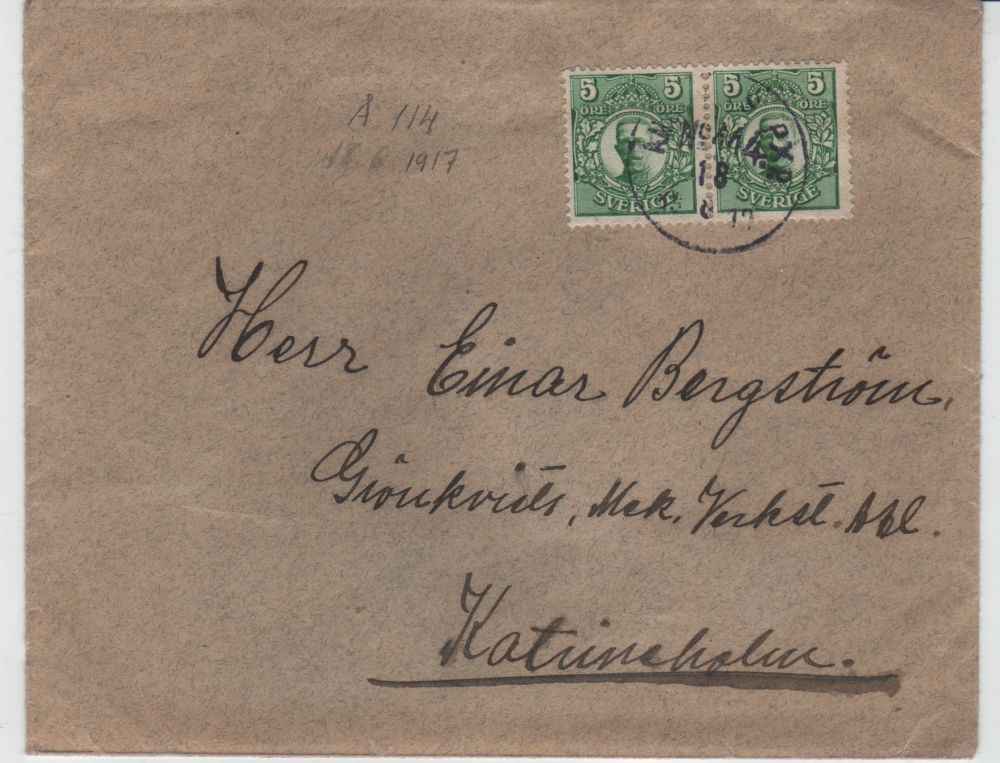 5 5 5 5
ÖRE ÖRE ÖRE ÖRE
SVERIGE SVERIGE
PKXP
No 114
18
6 17
A 114
18.6 1917
Herr Einar Bergström,
Grönkvists, Mek. Verkst. Abl.
Katrineholm.